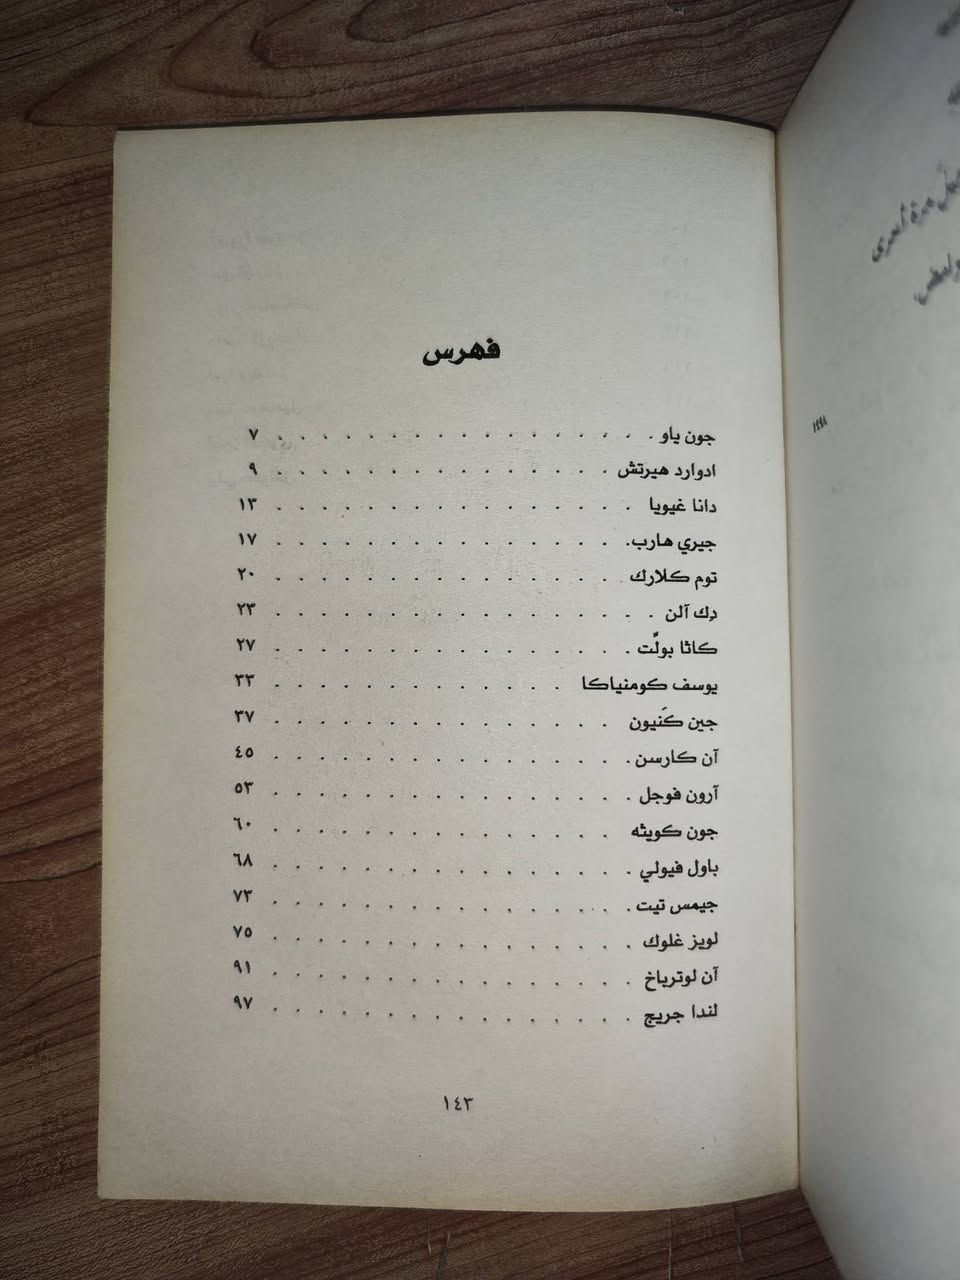 فهرس
جون ياو . . . . . . . . . . . . . . . . . ٧
ادوارد هيرتش . . . . . . . . . . . . . . . ٩
دانا غيويا . . . . . . . . . . . . . . . . ١٣
جيري هارب . . . . . . . . . . . . . . . . ١٧
توم كلارك . . . . . . . . . . . . . . . . ٢٠
دِك آلن . . . . . . . . . . . . . . . . . ٢٣
كاثا بولّت . . . . . . . . . . . . . . . . ٢٧
يوسف كومنياكا . . . . . . . . . . . . . ٣٣
جين كَنيون . . . . . . . . . . . . . . . ٣٧
آن كارسن . . . . . . . . . . . . . . . . ٤٥
آرون فوجل . . . . . . . . . . . . . . . . ٥٣
جون كويثه . . . . . . . . . . . . . . . ٦٠
باول فيولي . . . . . . . . . . . . . . . . ٦٨
جيمس تيت . . . . . . . . . . . . . . . . ٧٣
لويز غلوك . . . . . . . . . . . . . . . . ٧٥
آن لوترباخ . . . . . . . . . . . . . . . . ٩١
لندا جريج . . . . . . . . . . . . . . . . ٩٧
١٤٣